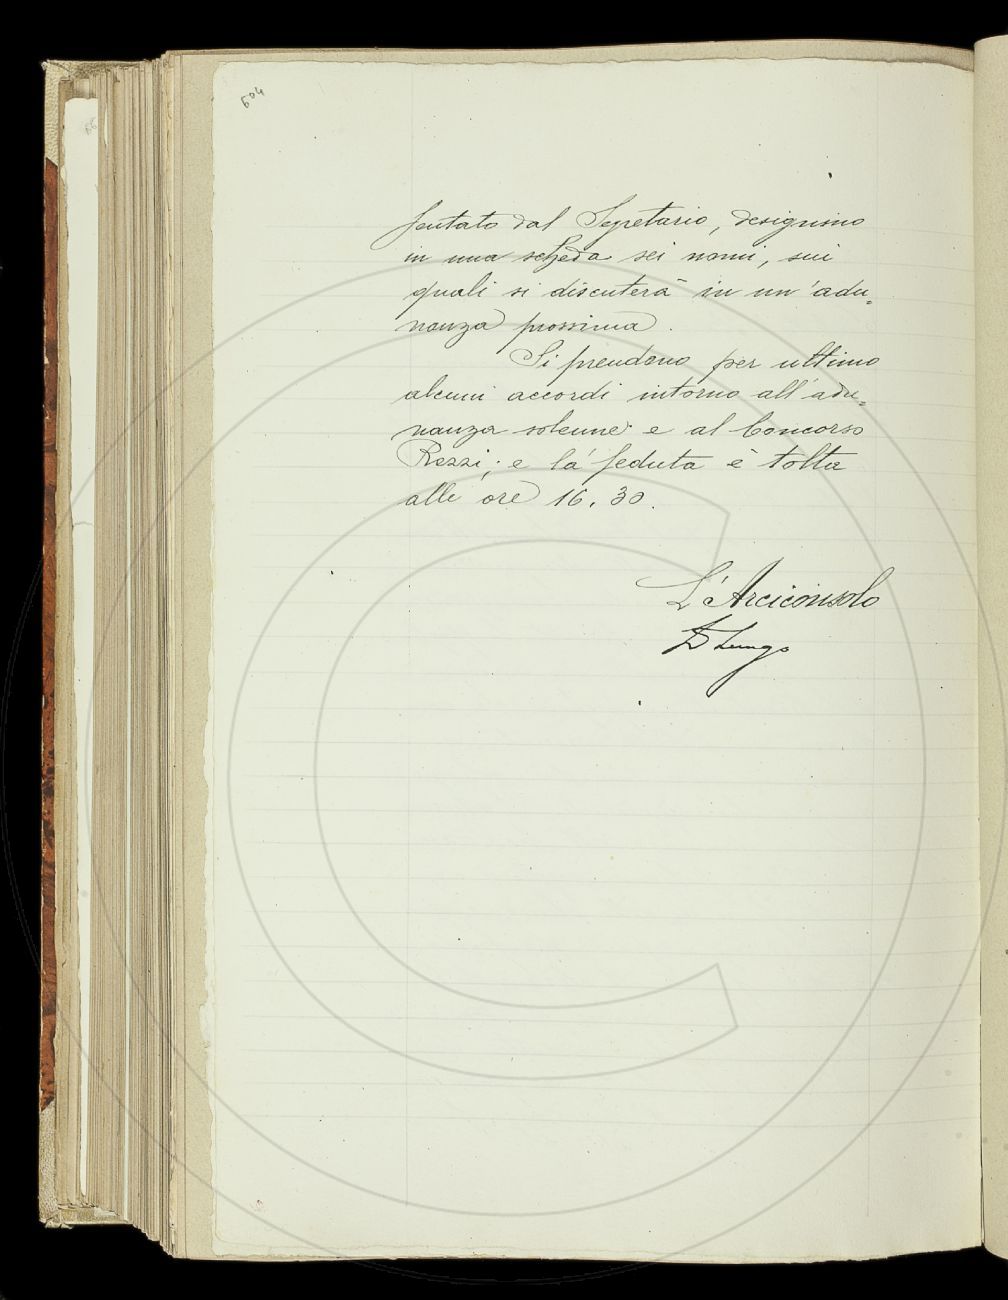 604
sentato dal Segretario, designino
in una scheda sei nomi, sui
quali si discuterà in un'adu=
nanza prossima.
Si prendono per ultimo
alcuni accordi intorno all'adu=
nanza solenne e al Concorso
Rezzi; e la seduta è tolta
alle ore 16,30.
L'Arciconsolo
D Lungo